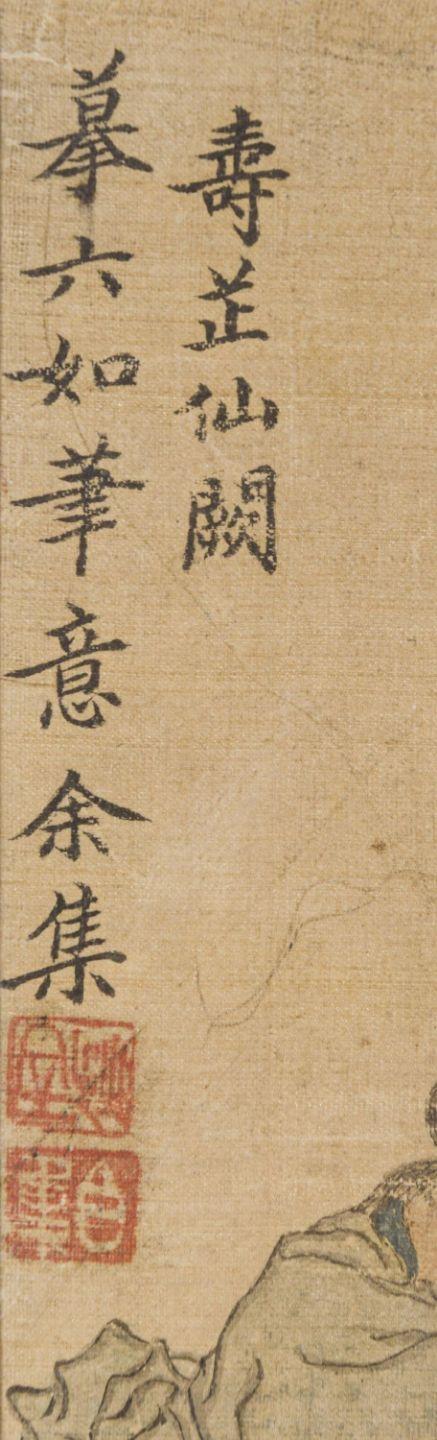 壽芷仙闕
摹六如筆意余集